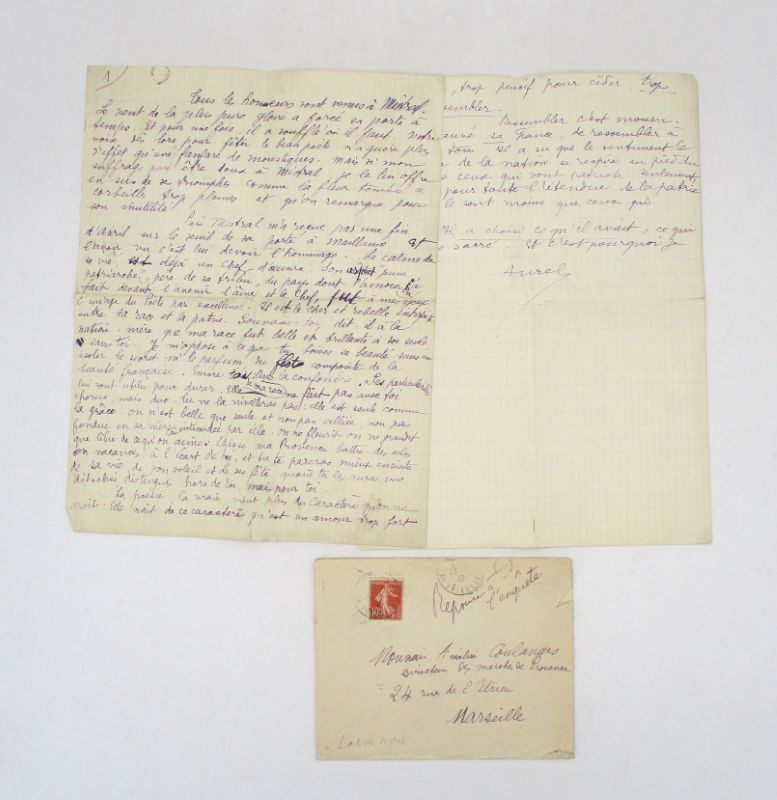 1)
Tous le honneurs sont venus à Mistral.
Le vent de la plus pure gloire a forcé sa porte à
temps. Et pour une fois, il a soufflé où il faut. Notre
voix dès lors, pour fêter le beau poète n'a guère plus
d'effet qu'une fanfare de moustiques. Mais si mon
suffrage peut être doux à Mistral, je le lui offre
en sus de ses triomphes comme la fleur tombée de
corbeilles trop pleines et qu'on remarque pour
son inutilité.
Puis Mistral m'a reçue par une fin
d'avril sur le seuil de sa porte à Maillane et
l'avoir vu c'est lui devoir l'hommage. Le calme de
sa vie est déjà un chef d'œuvre. Son jeune
patriarche, père de sa tribu, du pays dont l'amour l'a
fait devant l'avenir l'âme et le chef, fut à mes yeux
l'image du Poète par excellence. Il est le cher et rebelle interprète
entre sa race et la patrie. Souviens-toi, dit-il à la
nation-mère que ma race fut belle et brillante à soi seule
sans toi. Je m'oppose à ce que tu boives sa beauté sans en
isoler le secret ni le parfum du composite de la
beauté française. sans la confondre. Les particularités
lui sont utile pour durer. Elle ma race ne fait pas avec toi
chorus, mais duo. Tu ne la nivelleras pas: elle est seule comme
la grâce. On n'est belle que seule et non pas alliée, non pas
fondue en sa mère intimidée par elle. On ne fleurit on ne grandit
que libre de ce qu'on aime. Laisse ma Provence battre des ailes
en vacances, à l'écart de toi, et tu te pareras mieux ensuite
de sa vie, de son soleil et de ses fêtes, quand tu les auras vus
détachés distingués hors de toi, mais pour toi.
La poésie, la vraie vient plus du caractère qu'on ne
croit. Elle naît de ce caractère qu'est un amour trop fort
trop pensif pour céder, trop
sembler.
Ressembler c'est mourir.
sauvé sa France de ressembler à
tous. Il a su que le sentiment
de la nation se respire au pied du
ceux qui sont patriote seulement,
pour toute l'étendue de la patrie
le sont moins que ceux qui
Il a choisi ce qu'il avait, ce qui
sacré. Et c'est pourquoi je
Aurel
Réponse à
l'enquête
Monsieur Coulanges
directeur des marches de Provence
24 rue de l'Etrieu
Marseille